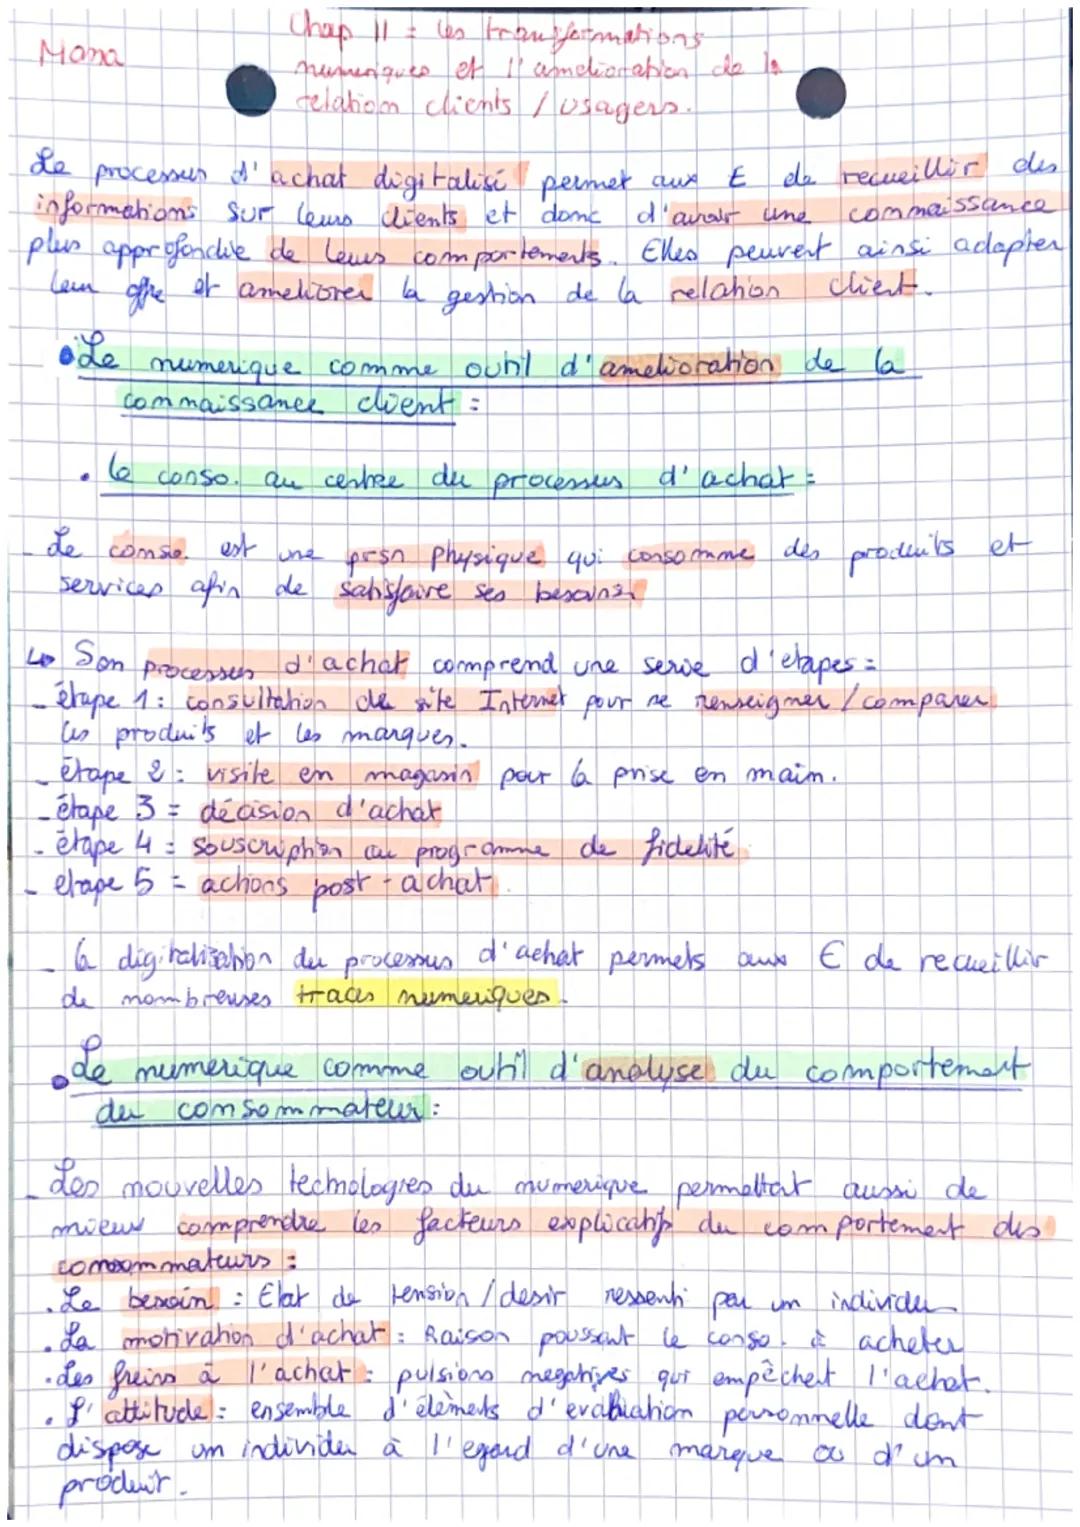 Mona
Chap 11 : les transformations
numeriques et l'amelioration de la
relation clients / usagers.
Le processus d'achat digitalisé permet aux E de recueillir des
informations sur leurs clients et donc d'avoir une connaissance
plus approfondie de leurs comportements. Elles peuvent ainsi adapter
leur offre et ameliorer la gestion de la relation client.
• Le numerique comme outil d'amelioration de la
connaissance client :
• le conso. au centre du processus d'achat :
- Le conso. est une prsn physique qui consomme des produits et
services afin de satisfaire ses besoins.
↳ Son processus d'achat comprend une serie d'etapes :
- étape 1 : consultation de site Internet pour se renseigner / comparer
les produits et les marques.
- étape 2 : visite en magasin pour la prise en main.
- étape 3 = décision d'achat
- étape 4 : souscription au programme de fidelité
- etape 5 = actions post-achat.
- la digitalisation du processus d'achat permets aux E de recueillir
de nombreuses traces numeriques.
• Le numerique comme outil d'analyse du comportement
du consommateur :
- Les nouvelles technologies du numerique permettent aussi de
mieux comprendre les facteurs explicatifs du comportement des
consommateurs :
. Le besoin : Etat de tension / desir ressenti par un individu
. La motivation d'achat : Raison poussant le conso. à acheter
. Les freins à l'achat : pulsions negatives qui empêchent l'achat.
. L'attitude : ensemble d'élèments d'evaluation personnelle dont
dispose un individu à l'egard d'une marque ou d'un
produit.